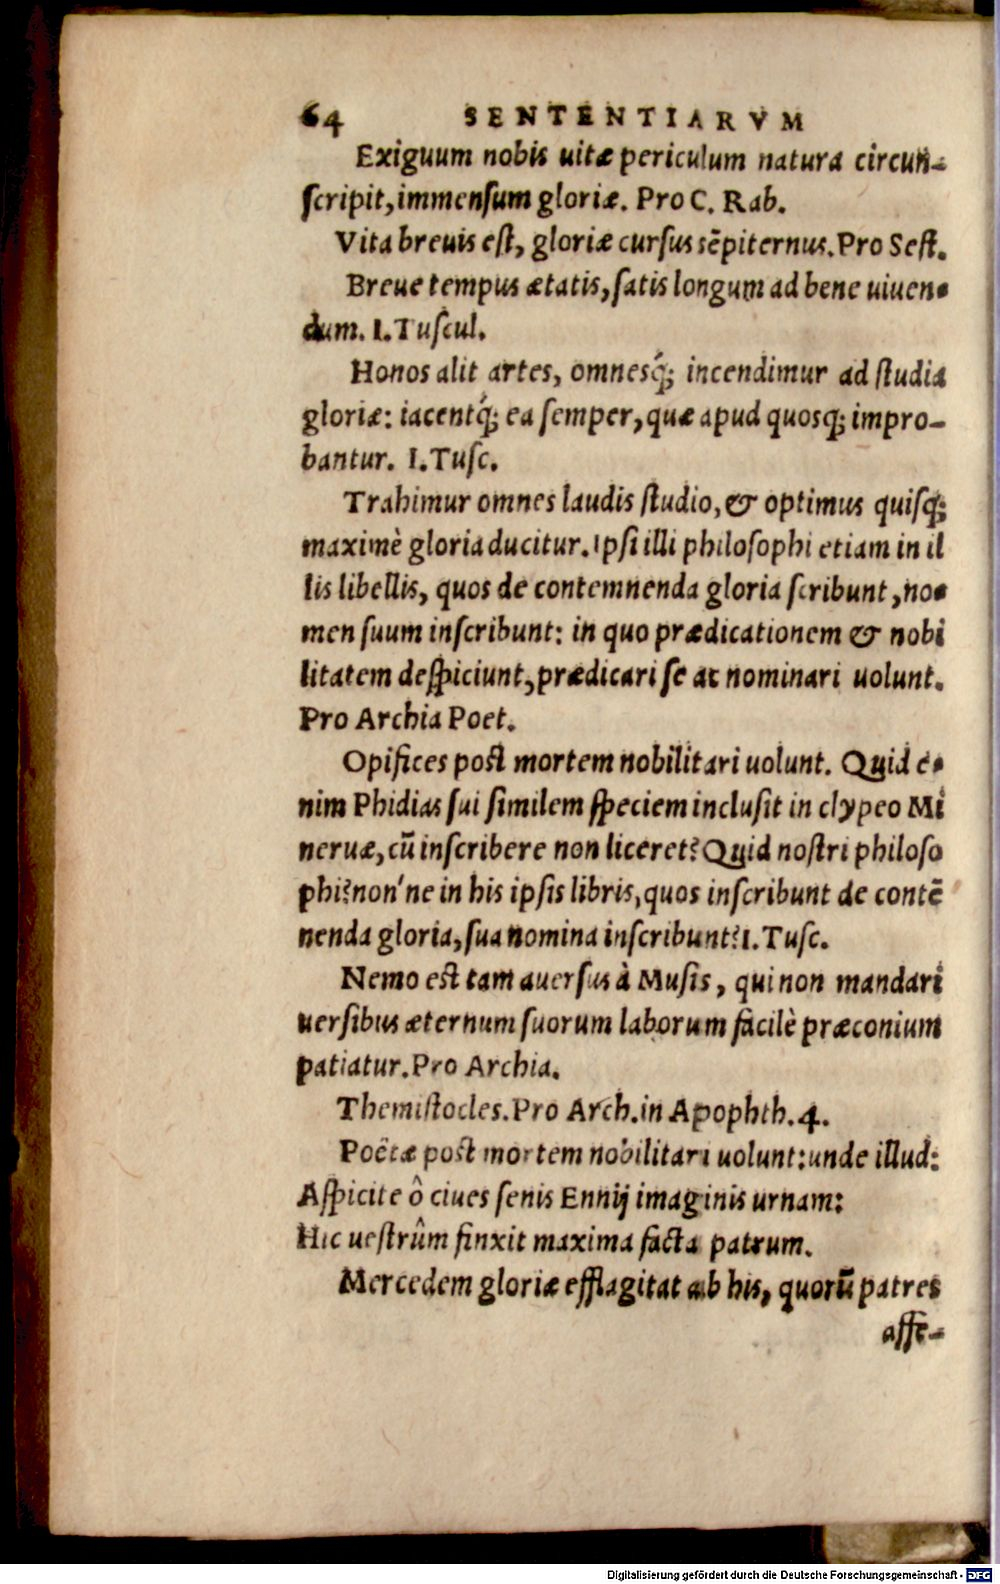 64 SENTENTIARVM
Exiguum nobis uitæ periculum natura circun-
scripit, immensum gloriæ. Pro C. Rab.
Vita breuis est, gloriæ cursus sēpiternus. Pro Sest.
Breue tempus ætatis, satis longum ad bene uiuen-
dum. I. Tuscul.
Honos alit artes, omnesq́; incendimur ad studia
gloriæ: iacentq́; ea semper, quæ apud quosq; impro-
bantur. I. Tusc.
Trahimur omnes laudis studio, & optimus quisq;
maximè gloria ducitur. Ipsi illi philosophi etiam in il
lis libellis, quos de contemnenda gloria scribunt, no-
men suum inscribunt: in quo prædicationem & nobi
litatem despiciunt, prædicari se ac nominari uolunt.
Pro Archia Poet.
Opifices post mortem nobilitari uolunt. Quid e-
nim Phidias sui similem speciem inclusit in clypeo Mi
neruæ, cū inscribere non liceret? Quid nostri philoso
phi? non'ne in his ipsis libris, quos inscribunt de contē
nenda gloria, sua nomina inscribunt? I. Tusc.
Nemo est tam auersus à Musis, qui non mandari
uersibus æternum suorum laborum facilè præconium
patiatur. Pro Archia.
Themistocles. Pro Arch. in Apophth. 4.
Poëtæ post mortem nobilitari uolunt: unde illud:
Aspicite ô ciues senis Ennij imaginis urnam:
Hic uestrûm finxit maxima facta patrum.
Mercedem gloriæ efflagitat ab his, quorū patres
affe-
Digitalisierung gefördert durch die Deutsche Forschungsgemeinschaft - DFG